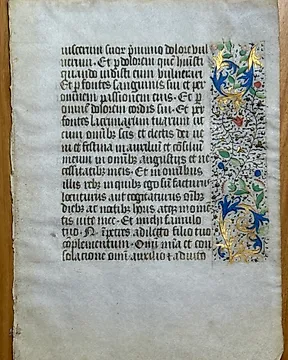 uiscerum suor p̄ nimio dolore vul
nerum. Et p dolorem quē hūisti
quando uidisti eum vulnerari
Et p fontes sanguinis sui et per
omnem passionem eius. Et p
omnē dolorem cordis tui. Et per
fontes lacrimarum tuarum ut
cum omībꝫ scīs et electis dei ue
ni et festina ī auxiliū et cōsiliū
meum in omībꝫ angustijs et ne
cessitatibꝫ meis. Et in omnibus
illis rebꝫ in quibꝫ ego sū facturus
locuturus aut cogitaturus oībꝫ
diebꝫ ac noctibꝫ horis atqꝫ mome
tis uite mee. Et michi famulo
tuo. N. īpetres a dilecto filio tuo
cōplementum. Omī mīa et con
solatione omī auxilio et adiuto